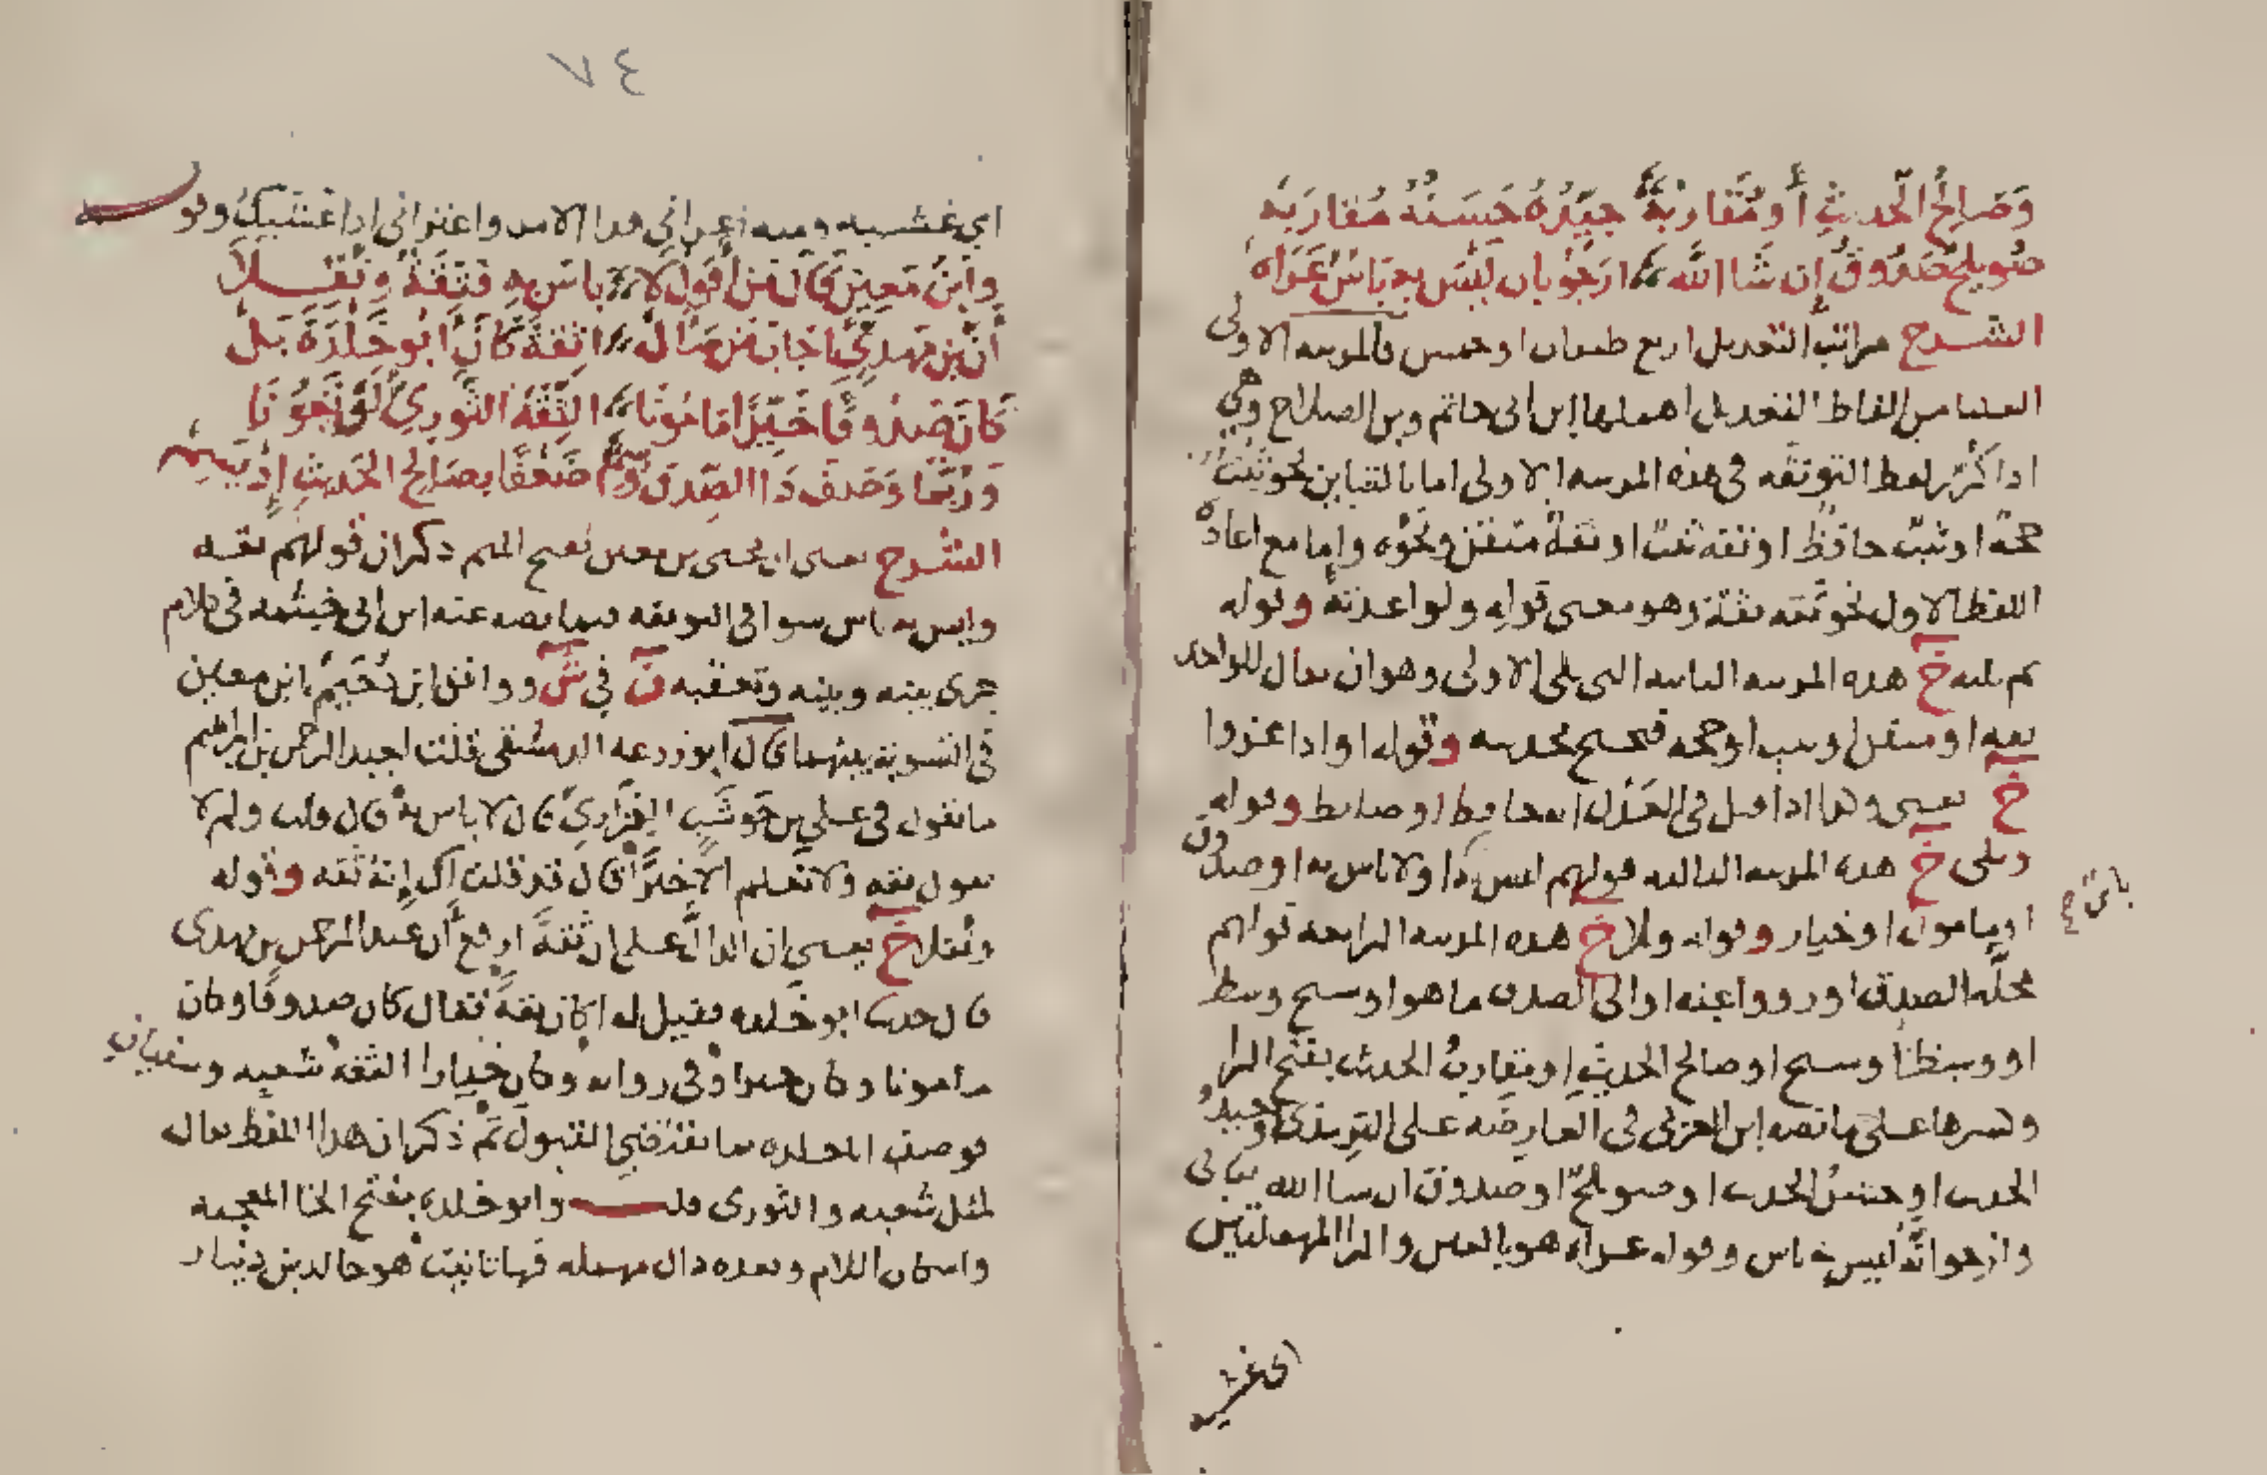 وَصَالِحُ الْحَدِيثِ أَو مُقَارَبُهْ جَيِّدُهُ حَسَنُهُ مُقَارَبُهْ
صُوَيلِحٌ صَدُوقٌ إِن شَا اللَّه ارجُو بان لَيْسَ بهِ بَاسٌ عَرَاه
الشرح مراتب التعديل اربع طبقات او خمس فالمرتبه الاولى
العليا من الفاظ التعديل اهملها ابن ابى حاتم وبن الصلاح وهي
اذا كُرّر لفظ التوثقه فى هذه المرتبه الاولى اما بالتباين نحو ثبت
حجة او ثبت حافظ او ثقه ثبت او ثقة متقن ونحوه واما مع اعادة
اللفظ الاول نحو ثقه ثقة وهو معنى قوله ولو اعدته وقوله
ثم يليه خ هذه المرتبه الثانيه التى تلى الاولى وهو ان يقال للواحد
ثقه او متقن او ثبت او حجه فيحتج بحديثه وقوله او اذا عزوا
خ يعنى وهذا اذا قيل فى العَدْل انه حافظ او ضابط وقوله
ويلى خ هذه المرتبه الثالثه قولهم ليس به او لا باس به او صدوق
باس صح
او مامون او خيار وقوله وتلا خ هذه المرتبه الرابعه قولهم
محلّه الصدق او رووا عنه او الى الصدق ما هو او شيخ وسط
او وسط او شيخ او صالح الحديث او مقارب الحديث بفتح الرا
وكسرها على ما نصه ابن العربى فى العارضه على الترمذى او جيد
الحديث او حسن الحديث او صويلح او صدوق ان شا الله تعالى
وارجوا انّه ليس به باس وقوله عراه هو بالعين والرا المهملتين
اى غشيه
٧٤
اي غشيه ومنه اعراني هذا الامر واعتراني اذا غشيك وقوله
وابنُ مَعِينٍ قال مَن أَقولُ لا باسَ بهِ فَثِقَةٌ وَنُقِلا
أَنَّ بن مَهديٍّ اجَابَ مَن سَأَل اثِقَةً كَانَ ابُو خَلْدَةَ بَل
كَانَ صَدُوقًا خَيِّرًا مَامُونَا الثِّقَةُ الثَّورِيُّ لَو تَعُونَا
وَرُبَّمَا وَصَفَ ذَا الصِّدقِ وُسِم ضَعْفًا بِصَالِح الحَديثِ إِذ يَسِمْ
الشرح يعنى ان يحيى بن معين بفتح الميم ذكر ان قولهم ثقه
وليس به باس سوا فى التوثقه فيما نصه عنه ابن ابى خيثمه فى كلام
جرى بينه وبينه وتعقبه ن في ش ووافق ابن دُحَيم بابن معين
فى التسوية بينهما قال ابو زرعه الدمشقى قلت لعبد الرحمن بن ابراهيم
ما تقول فى على بن حَوشَبٍ الفزاري قال لا باس به قال قلت ولم لا
تقول ثقه ولا نعلم الا خيرًا قال قد قلت لك إنه ثقه وقوله
ونقلا خ يعنى ان الدالّ على ان ثقة ارفع أن عبد الرحمن بن مهدى
قال حدثنا ابو خلده فقيل له اكان ثقةً فقال كان صدوقا وكان
مامونا وكان خيرا وفى روايه وكان خيارا الثقه شعبه وسفيان
فوصف ابا خلده بما يقتضي القبول ثم ذكر ان هذا اللفظ يقال
لمثل شعبه والثورى قلت وابو خلده بفتح الخا المعجمه
واسكان اللام وبعده دال مهمله فها تانيث هو خالد بن دينار